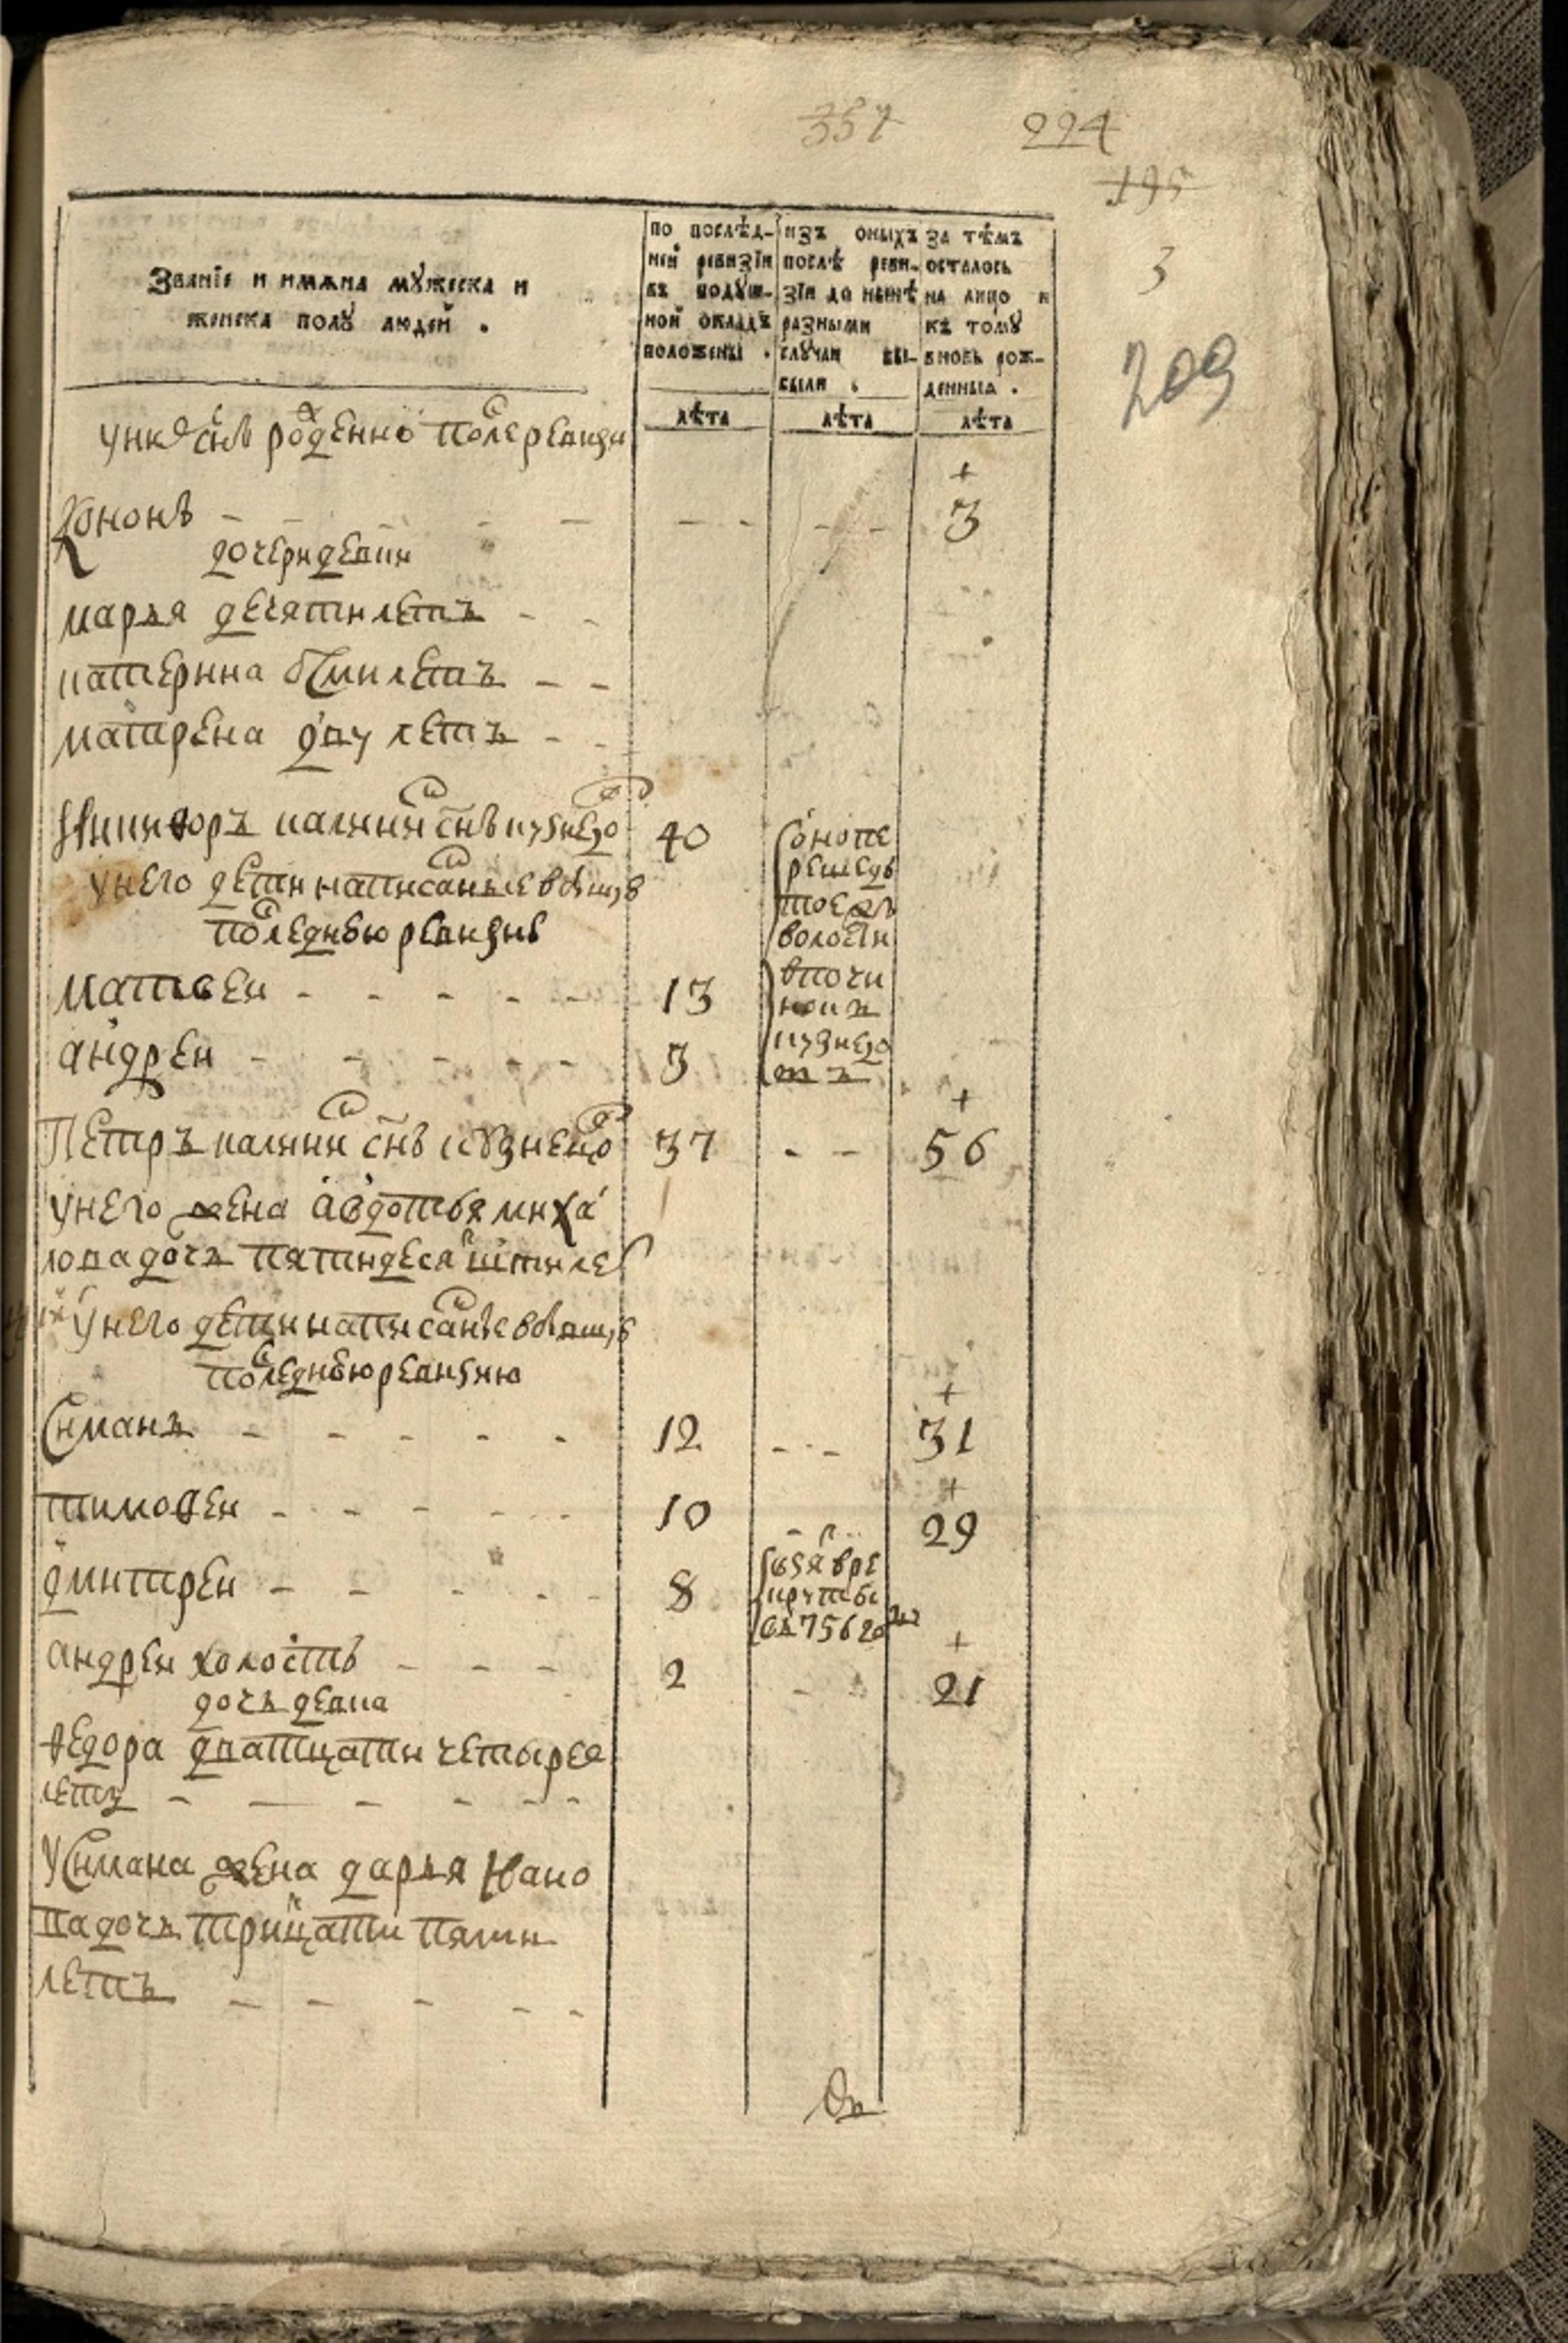 357 224
195
3
209
Званїе и имѧна мꙋжеска и
женска полꙋ людей .
по послѣд-
ней ревизїи
въ подꙋш-
ной окладъ
положены .
изъ оныхъ
послѣ реви-
зїи до нынѣ
разными
слꙋчаи вы-
были .
за тѣмъ
осталось
на лицо и
къ томꙋ
вновь рож-
денныя .
лѣта лѣта лѣта
у них снъ рожденно после ревизи
+
Кононъ - - - - - - 3
дочери девки
марья десяти летъ - -
катерина осми летъ - -
матрена двух летъ - -
Никифоръ калинин снъ кузнецо 40
у него дети написаные в бывшую
последнюю ревизию
оно пе
решедъ
тое жъ
волости
в почи
нокъ
кузнецо
въ
матвеи - - - - - 13
андреи - - - - - 3
+
Петръ калинин снъ кузнецо 37 - - 56
у него жена авдотья миха
лова дочь пятидесят шти лет
у него дети написаные в бывшую
последнюю ревизию
+
Симанъ - - - - - 12 - - 31
+
тимофеи - - - - - 10 - 29
дмитреи - - - - - 8
взят в ре
круты
въ 756 году
+
андреи холостъ - - - 2 - 21
дочь девка
федора дватцати четырех
летъ - - - - - -
У Симана жена дарья Ивано
ва дочь трицати пяти
летъ - - - - -